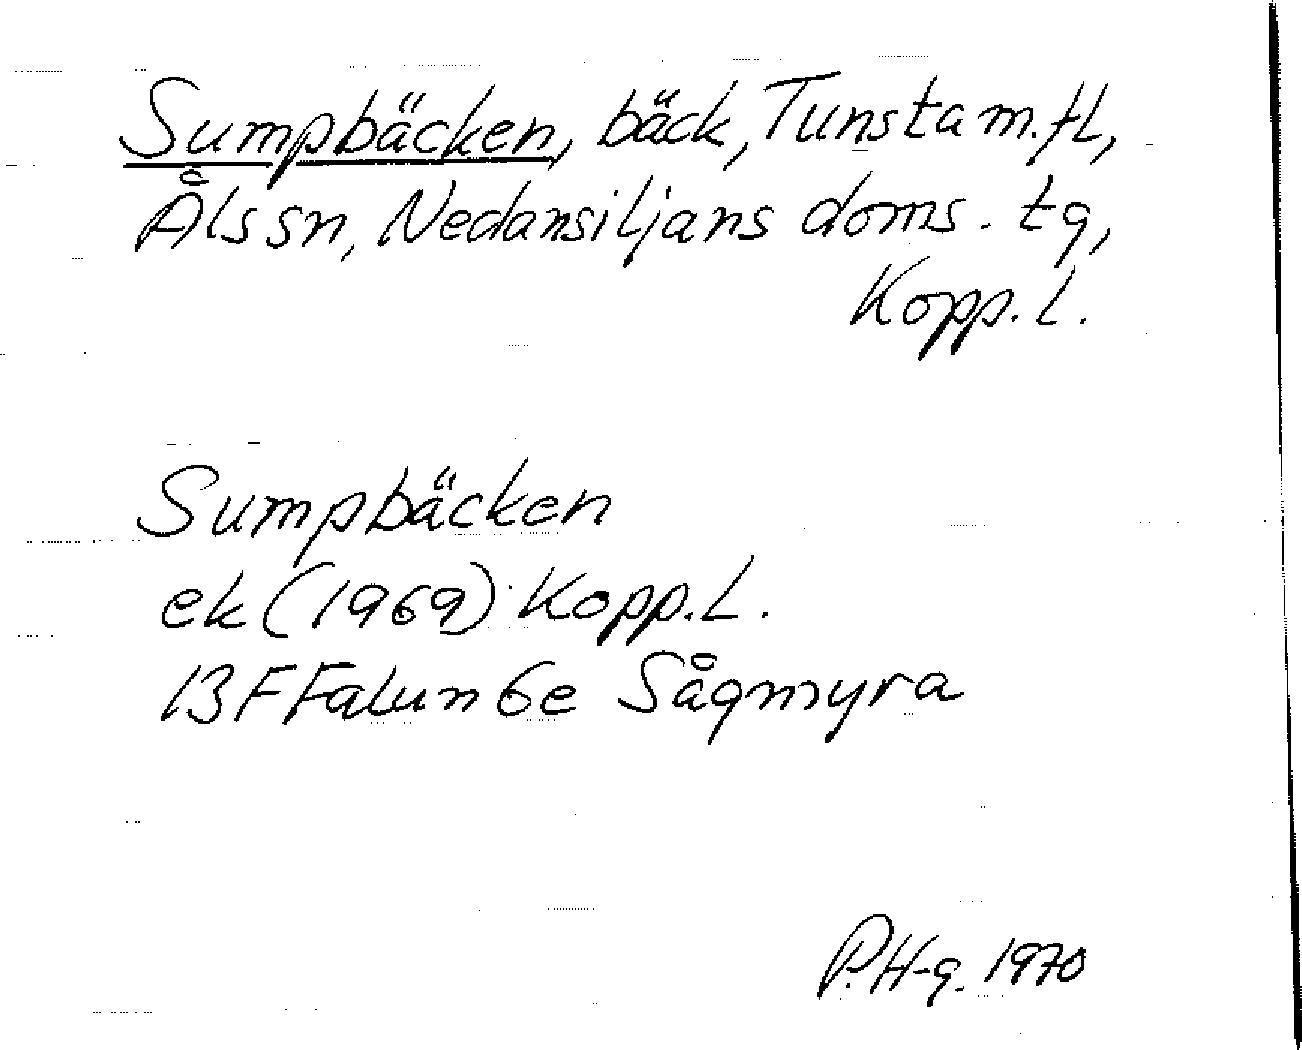 Sumpbäcken, bäck, Tunsta m.fl,
Åls sn, Nedansiljans doms. tg,
Kopp. l.
Sumpbäcken
ek (1969) Kopp. L.
13 F Falun 6e Sågmyra
P.H-g. 1970